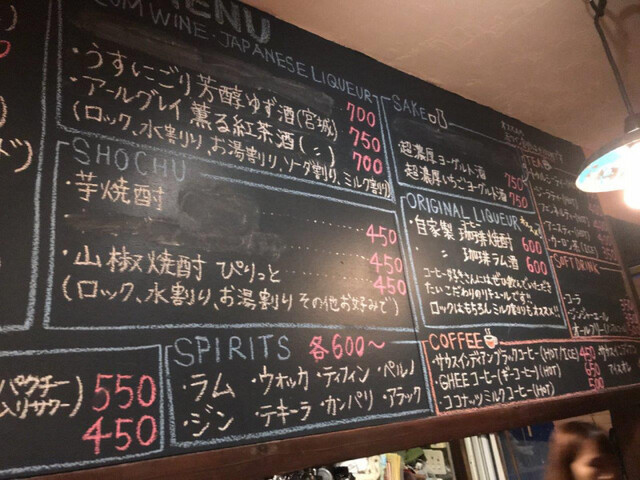 MENU
PLUM WINE・JAPANESE LIQUEUR
・うすにごり芳醇ゆず酒(宮城) 700
・アールグレイ薫る紅茶酒(〃) 750
700
(ロック、水割り、お湯割り、ソーダ割り、ミルク割り)
SHOCHU
・芋焼酎
450
・山椒焼酎 ぴりっと 450
450
(ロック、水割り、お湯割り その他お好みで)
(パクチー
ムリサワー) 550
450
SPIRITS 各600〜
・ラム ・ウォッカ ・ティフィン ・ペルノ
・ジン ・テキーラ ・カンパリ ・アラック
SAKE
超濃厚ヨーグルト酒 750
超濃厚いちごヨーグルト酒 750
ORIGINAL LIQUEUR
コーヒー
・自家製 珈琲焼酎 600
・〃 珈琲ラム酒 600
コーヒー好きさんにはぜひ飲んでいただき
たいこだわりのリキュールです!!
ロックはもちろんミルク割りもオススメ!!
COFFEE
・サウスインディアンブラックコーヒー(HOT/ICE) 450
・GHEEコーヒー(ギーコーヒー)(HOT)
・ココナッツミルクコーヒー(HOT) 500
TEA
SOFT DRINK
・コーラ
・ジンジャーエール